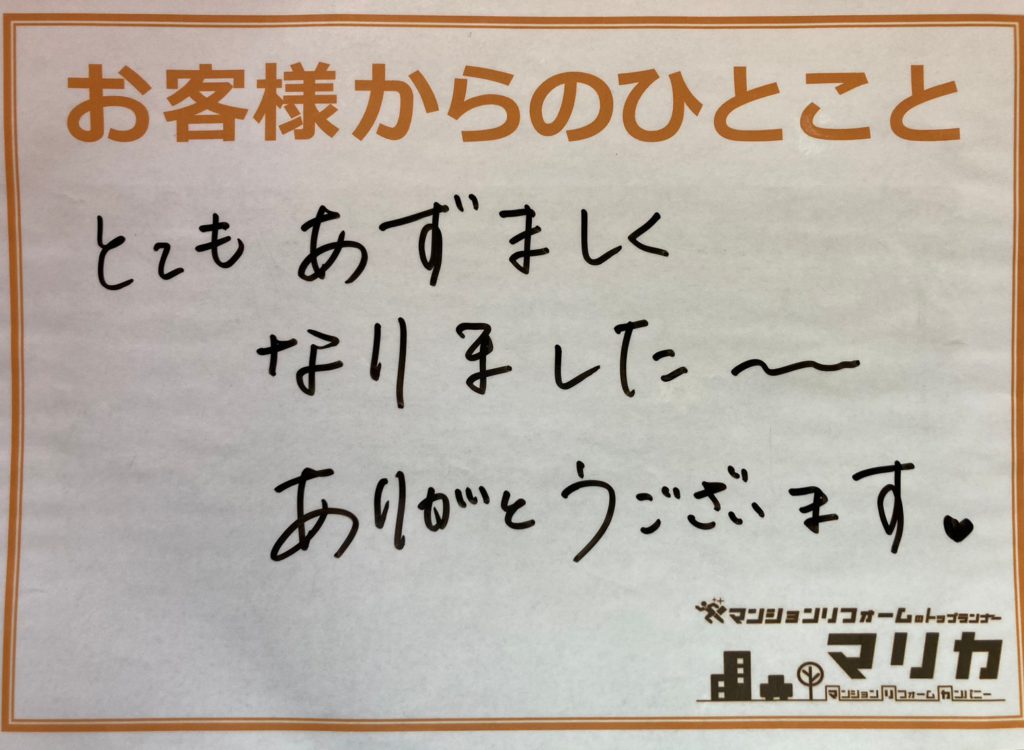 お客様からのひとこと
とても あずましく
なりました〜
ありがとうございます♥
マンションリフォームのトップランナー
マリカ
マンションリフォームカンパニー